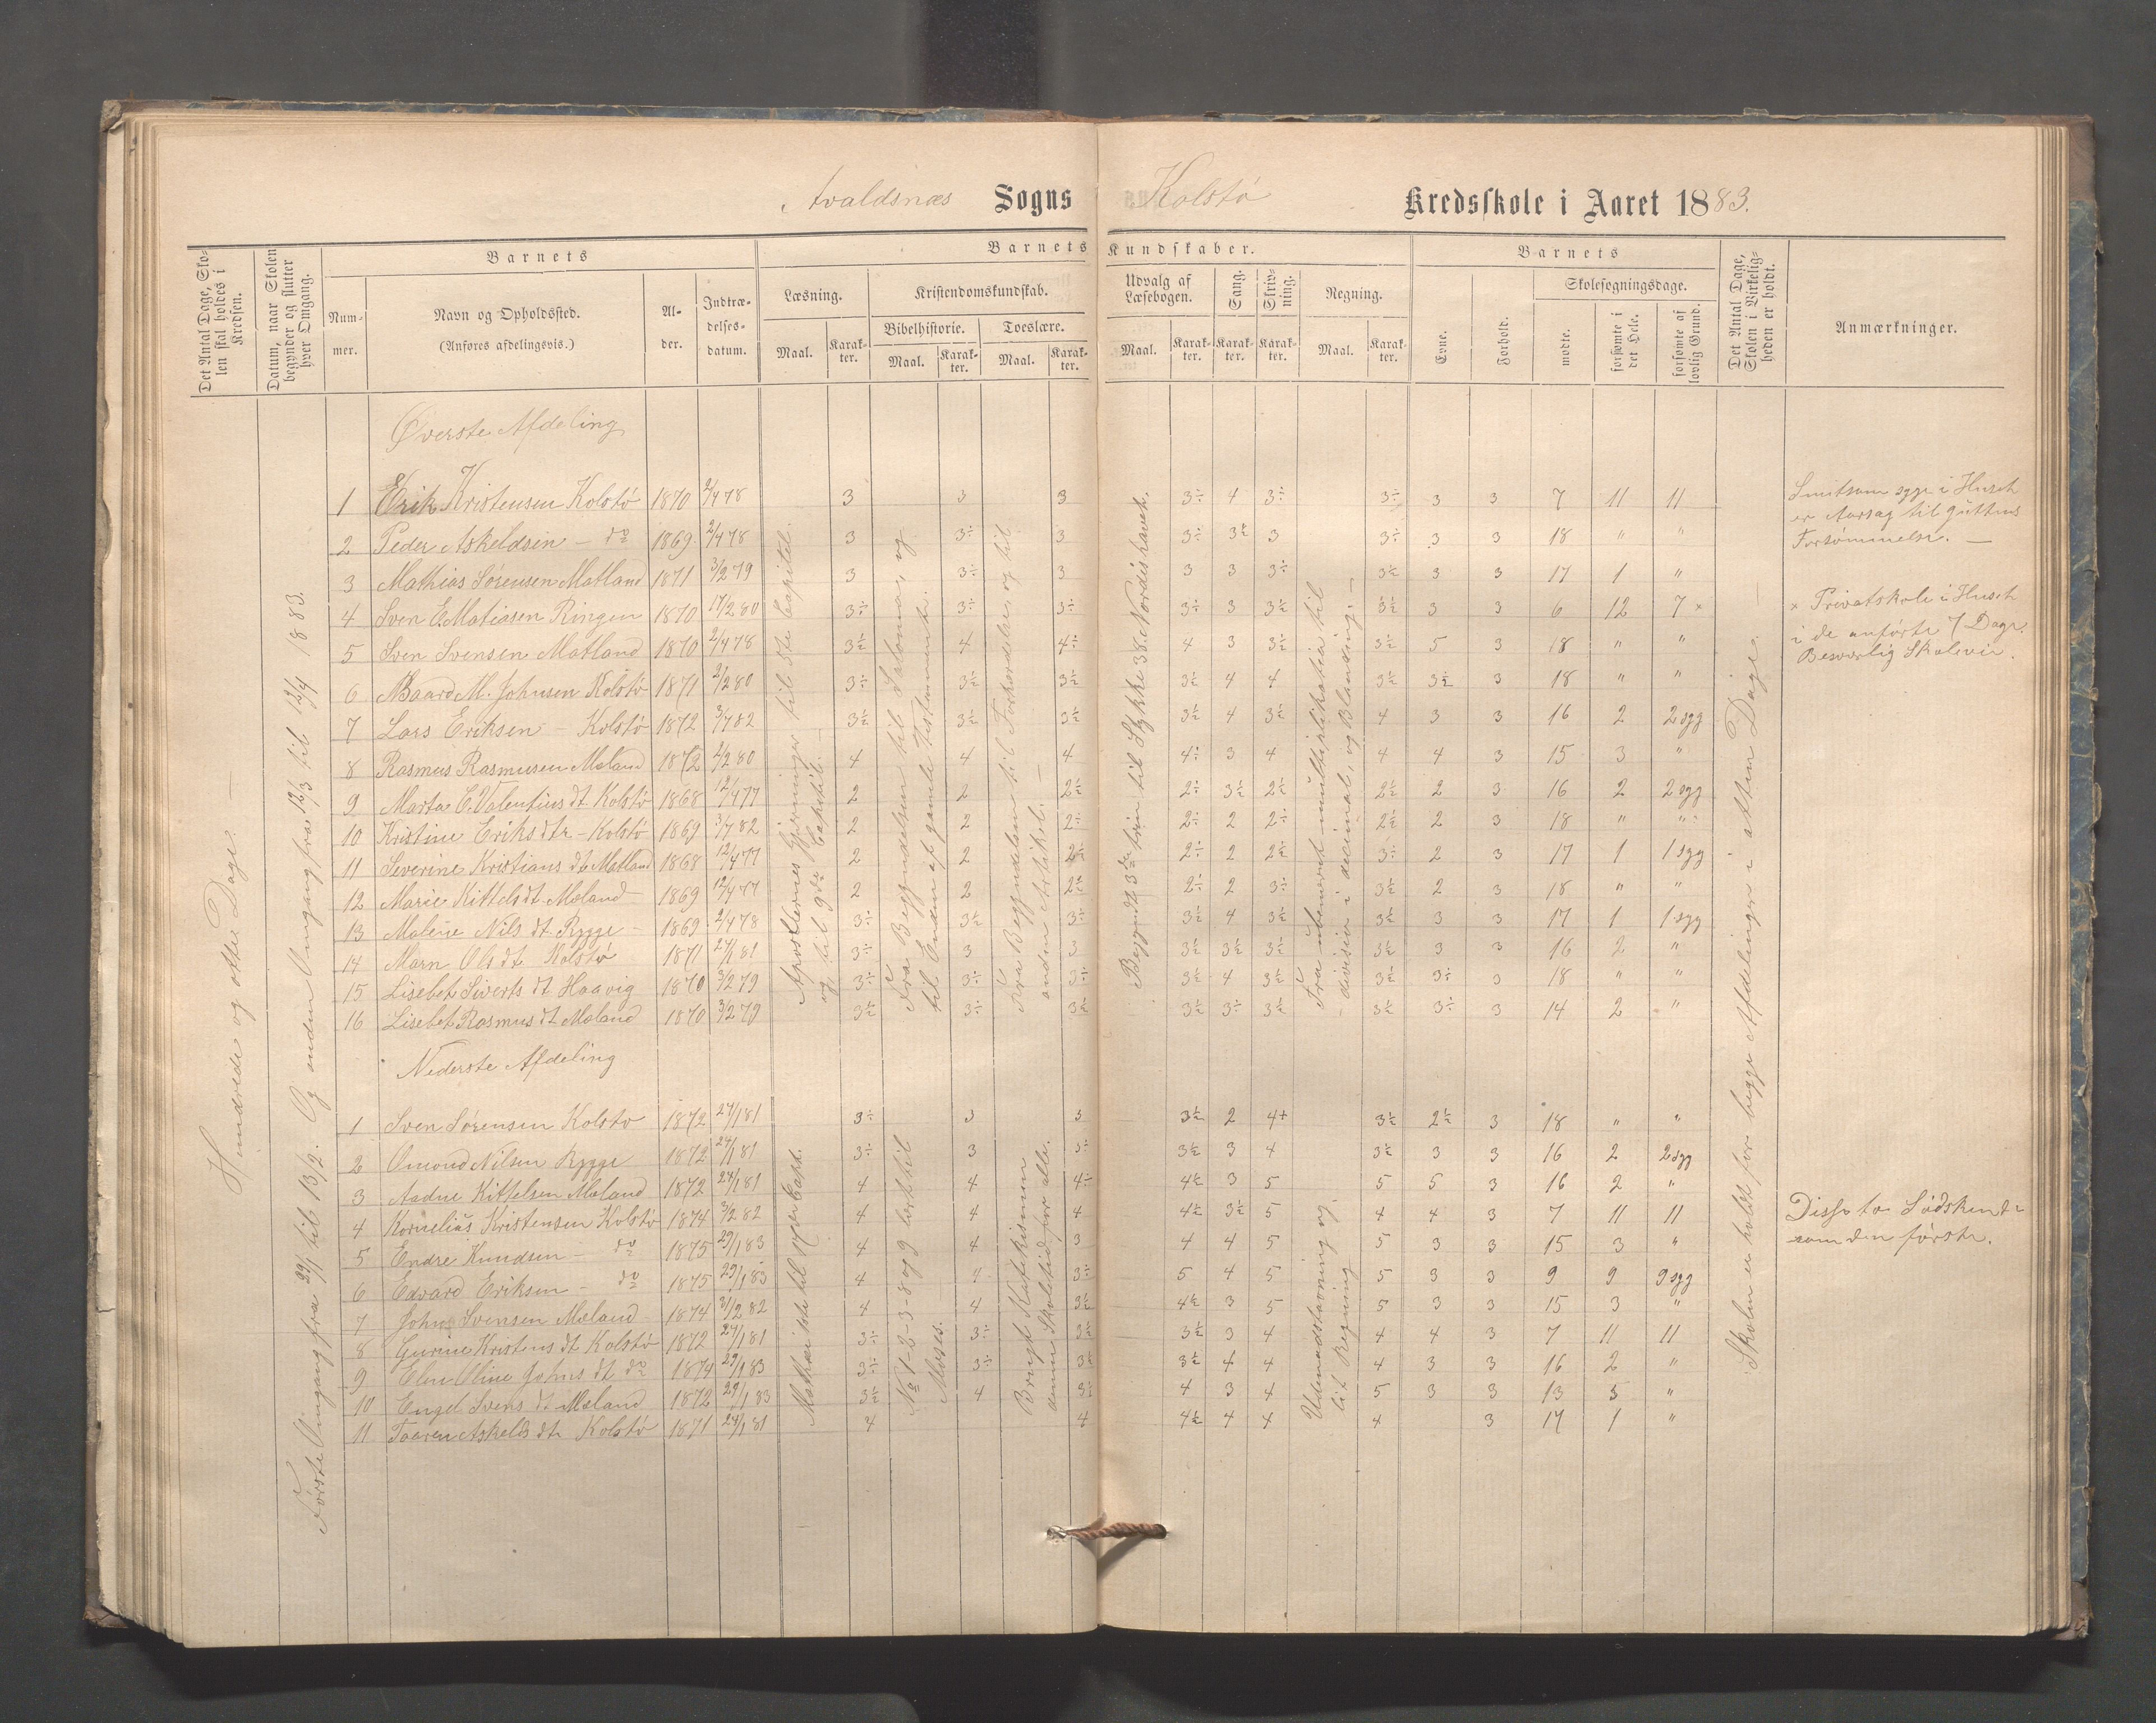 Avaldsnæs Sogns Kolstø Kredsskole i Aaret 1883.
Det Antal Dage, Skolen skal holdes i Kredsen.
Datum, naar Skolen begynder og slutter hver Omgang.
Barnets
Nummer.
Navn og Opholdssted.
(Anføres afdelingsvis.)
Alder.
Indtrædelsesdatum.
Barnets Kundskaber.
Læsning.
Maal. Karakter.
Kristendomskundskab.
Bibelhistorie.
Maal. Karakter.
Troeslære.
Maal. Karakter.
Udvalg af Læsebogen.
Maal. Karakter.
Sang.
Karakter.
Skrivning.
Karakter.
Regning.
Maal. Karakter.
Barnets
Evne.
Forhold.
Skolesøgningsdage.
mødte.
forsømte i det Hele.
forsømte af lovlig Grund.
Det Antal Dage, Skolen i Virkeligheden er holdt.
Anmærkninger.
Hundrede og otte Dage. —
Første Omgang fra 29/1 til 13/2. Og anden Omgang fra 12/3 til 12/4 1883.
Øverste Afdeling
1 Erik Kristensen Kolstø 1870 2/4 78 3 3 3 3÷ 4 3÷ 3÷ 3 3 7 11 11
2 Peder Askeldsen – do 1869 2/4 78 3 3÷ 3 3÷ 3½ 3 3÷ 3 3 18 " "
3 Mathias Sørensen Matland 1871 3/2 79 3 3÷ 3 3 3 3÷ 3½ 3 3 17 1 "
4 Sven E. Matiasen Ringen 1870 17/2 80 3÷ 3÷ 3÷ 3÷ 3 3½ 3½ 3 3 6 12 7 ×
5 Sven Svensen Matland 1870 2/4 78 3½ 4 4÷ 4 3 3½ 3½ 5 3 18 " "
6 Baard M. Johnsen Kolstø 1871 2/2 80 3÷ 3½ 3½ 3½ 4 4 3½ 3½ 3 18 " "
7 Lars Eriksen – Kolstø 1872 3/7 82 3½ 3½ 3½ 3½ 4 3½ 4 3 3 16 2 2 syg
8 Rasmus Rasmusen Mæland 1872 2/2 80 4 4 4 4÷ 3 4 4 4 3 15 3 "
9 Marta E. Valentins dt Kolstø 1868 12/4 77 2 2 2½ 2÷ 3½ 2½ 2½ 2 3 16 2 2 syg
10 Kristine Eriks dtr – Kolstø 1869 3/7 82 2 2 2÷ 2÷ 2 2÷ 2½ 2 3 18 " "
11 Severine Kristians dt Matland 1868 12/4 77 2 2 2½ 2÷ 2 2½ 3÷ 2 3 17 1 1 syg
12 Marie Kittels dt Mæland 1869 12/4 77 2 2 2½ 2÷ 2 3÷ 3½ 2 3 18 " "
13 Malene Nils dt Rygge – 1869 2/4 78 3÷ 3½ 3÷ 3½ 4 3½ 3½ 3 3 17 1 1 syg
14 Marn Ols dt Kolstø 1871 24/1 81 3÷ 3 3 3½ 3½ 3½ 3½ 3 3 16 2 "
15 Lisebet Siverts dt Haavig 1870 3/2 79 3÷ 3÷ 3÷ 3½ 4 3½ 3½ 3÷ 3 18 " "
16 Lisebet Rasmus dt Mæland 1870 3/2 79 3½ 3÷ 3½ 3½ 3÷ 3½ 3½ 3÷ 3 14 2 "
Apostlernes Gjerninger til 5te Capitel.
og til 9de Capitil.
Fra Begyndelsen til Salomo, og
til Enden af gamle Testamente.
Fra Begyndelsen til Forkorelse, og til
anden Artikel. —
Begyndt 3die trin til Stykke 38. Nordishavet.
Fra ubenævnt multiplikation til
division i decimal, og Blanding. —
Smitsom syge i Huset
er Aarsag til guttens
Forsømmelse. —
× Privatskole i Huset
i de anførte 7 Dage.
Besværlig Skolevei.
Nederste Afdeling
1 Sven Sørensen Kolstø 1872 24/1 81 3÷ 3 3 3½ 2 4+ 3½ 2½ 3 18 " "
2 Omond Nilsen Rygge 1872 24/1 81 3÷ 3 3÷ 3½ 3 4 3½ 3 3 16 2 2 syg
3 Aadne Kittelsen Mæland 1872 24/1 81 4 4 4÷ 4½ 3 5 5 5 3 16 2 "
4 Kornelius Kristensen Kolstø 1874 3/2 82 4 4 4 4½ 3½ 5 4 4 3 7 11 11
5 Endre Knudsen – do 1875 29/1 83 4 4 3 4 4 5 5 3 3 15 3 "
6 Edvard Eriksen – do 1875 29/1 83 4 4 3÷ 5 4 5 5 3 3 9 9 9 syg
7 John Svensen Mæland 1874 3/2 82 4 4 3½ 4½ 3 5 5 3 3 15 3 "
8 Gurine Kristens dt Kolstø 1872 24/1 81 3÷ 3÷ 3½ 3½ 3 4 4 4 3 7 11 11
9 Elen Oline Johns dt do 1874 29/1 83 3÷ 3÷ 3½ 3½ 4 4 4 3 3 16 2 "
10 Engel Svens dt Mæland 1872 29/1 83 3½ 4 3½ 4 3 4 5 3 3 13 5 "
11 Taaren Askelds dt Kolstø 1871 24/1 81 4 4 4½ 4 4 4 3 17 1 "
Mathæi 1ste til 17en Capt.
No 1-2-3-8 og 9 læst til
Moses.
Brugt Katekismen
denne Skoletid for alle.
Udenadstavning og
lit Regning
Skolen er holdt for begge Afdelinger i atten Dage. —
Disse to Sødskende
som den første.